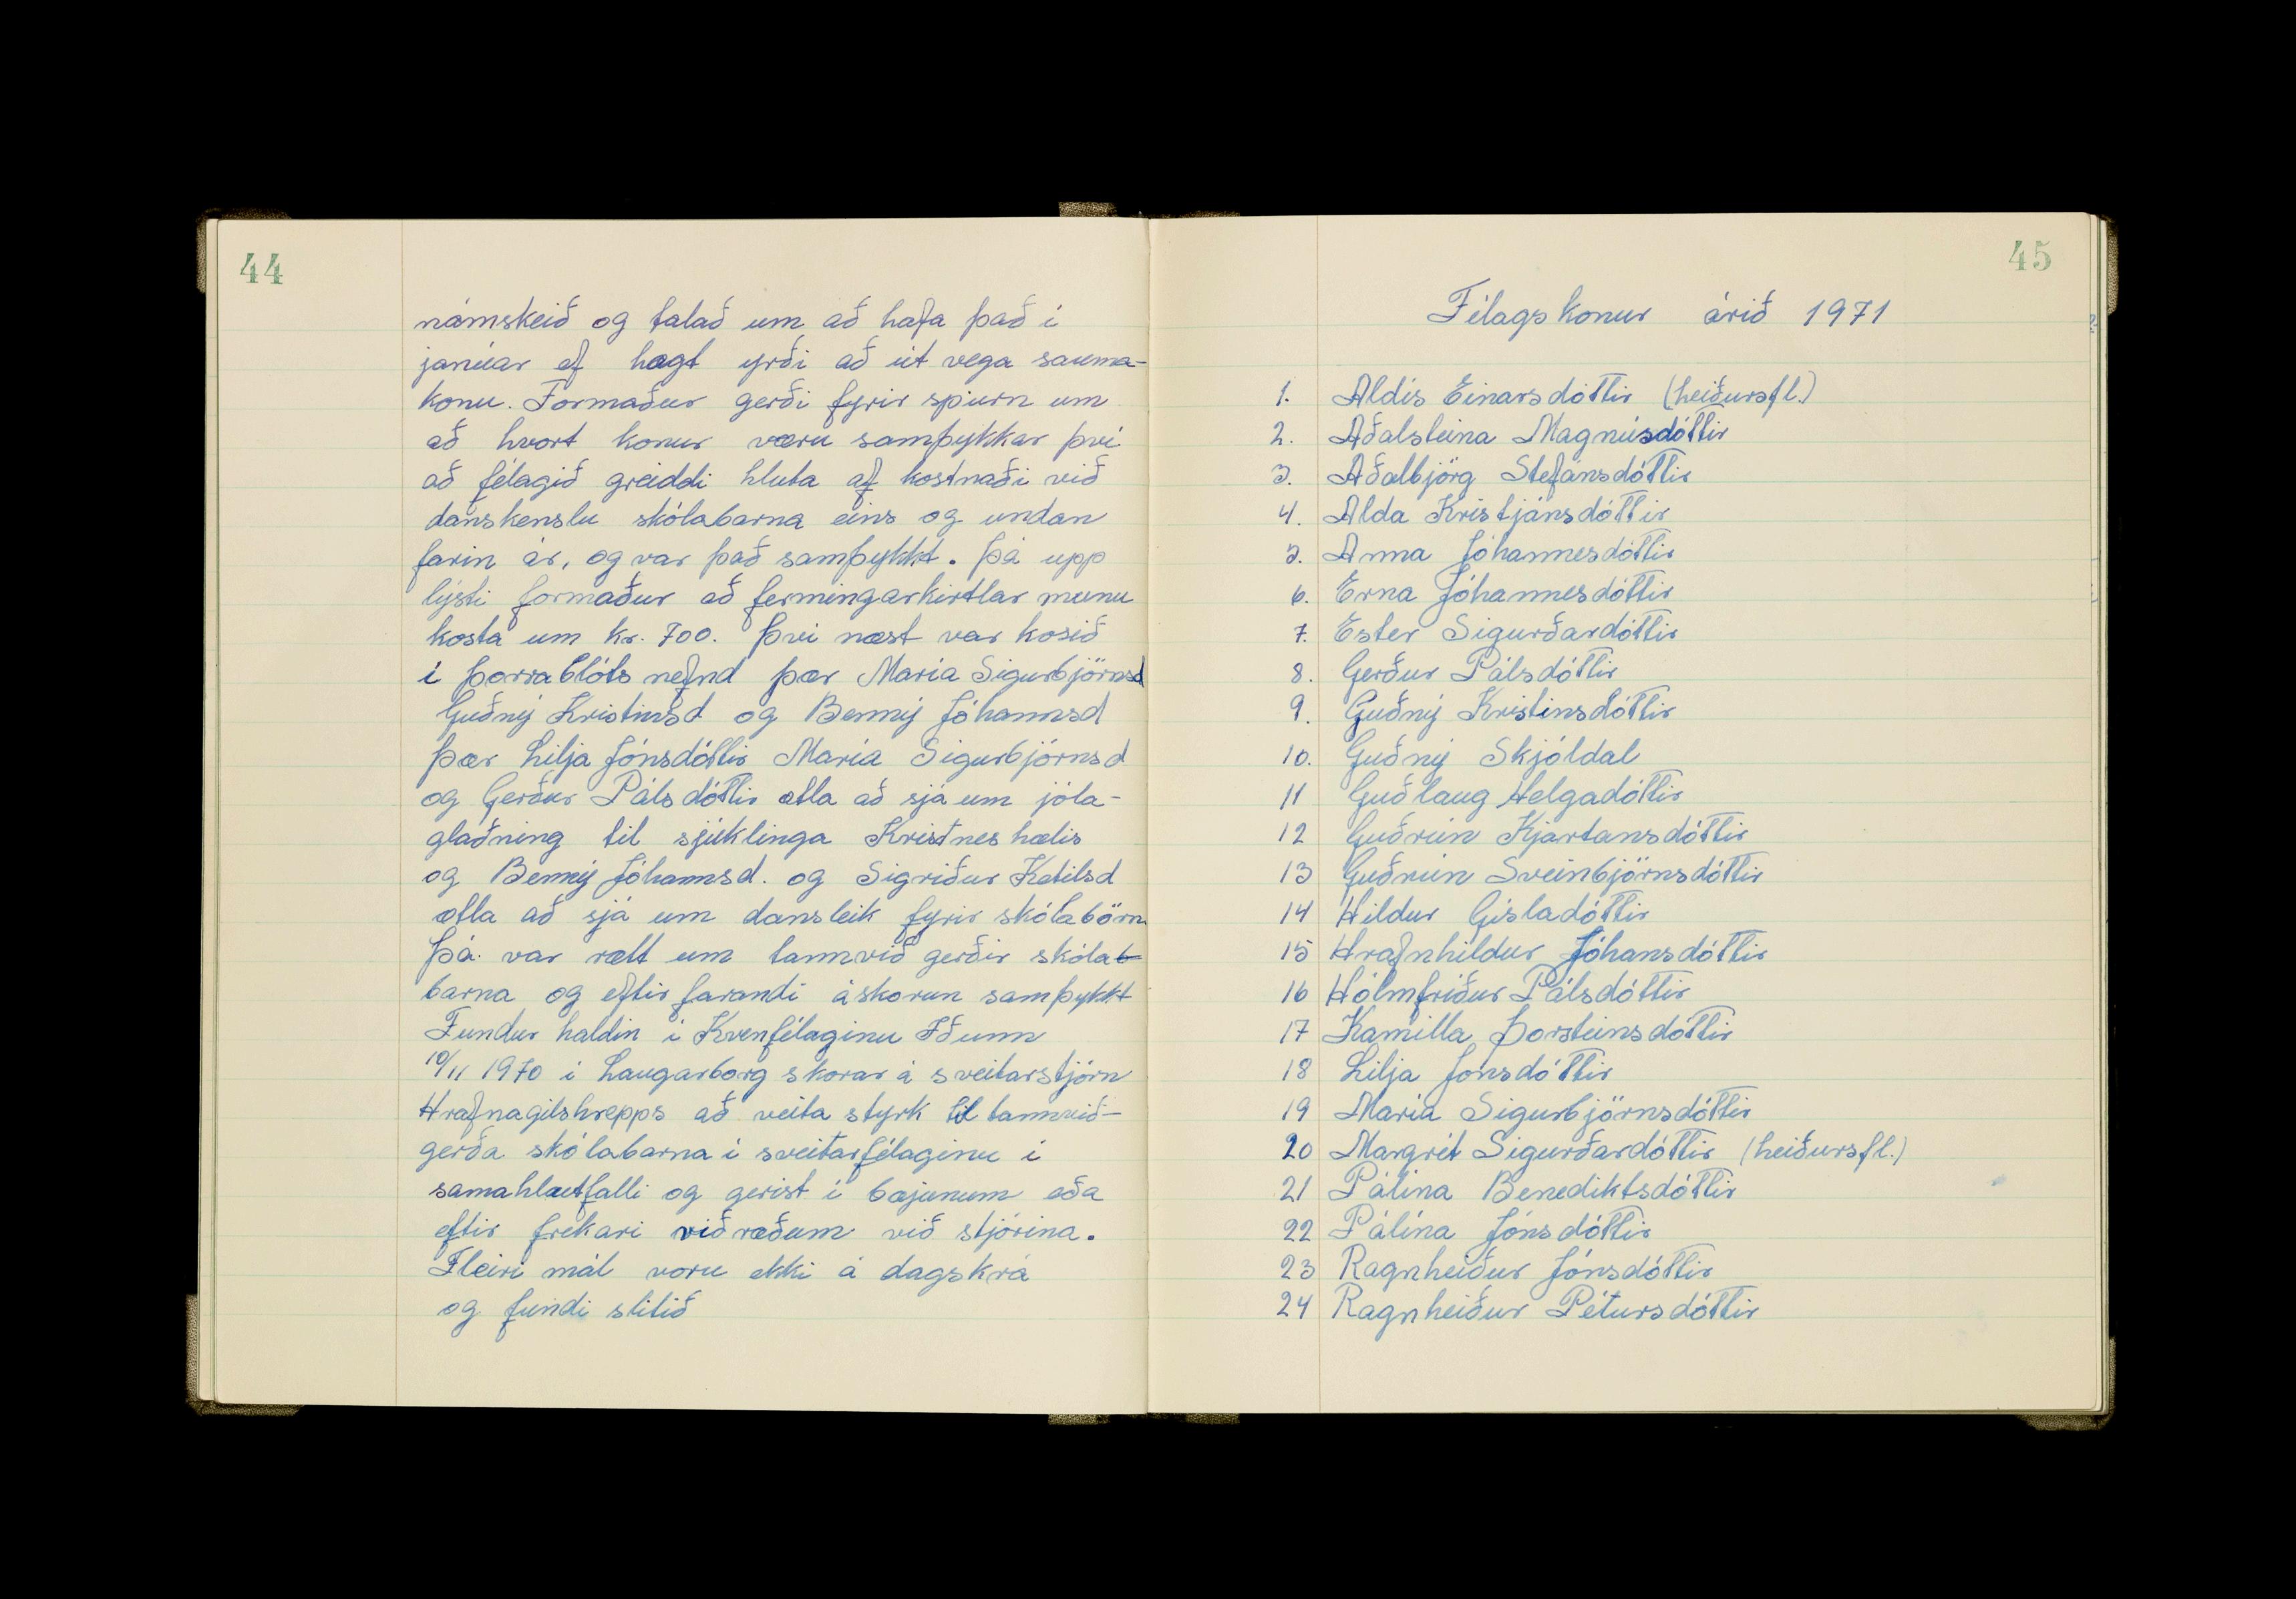 44
námskeið og talað um að hafa það í
janúar ef hægt yrði að út vega sauma-
konu. Formaður gerði fyrir spurn um
að hvort konur væru samþykkar því
að félagið greiddi hluta af kostnaði við
danskenslu skólabarna eins og undan
farin ár, og var það samþykkt. Þá upp
lýsti formaður að fermingarkirtlar munu
kosta um kr. 700. Því næst var kosið
í þorrablóts nefnd þær María Sigurbjörnsd
Guðný Kristinsd og Benný Jóhannsd
þær Lilja Jónsdóttir María Sigurbjörnsd
og Gerður Pálsdóttir ætla að sjá um jóla-
glaðning til sjúklinga Kristnes hælis
og Benný Jóhannsd. og Sigríður Ketilsd
ætla að sjá um dansleik fyrir skólabörn
Þá var rætt um tannvið gerðir skólab
barna og eftir farandi áskorun samþykkt
Fundur haldin í Kvenfélaginu Iðunn
10/11 1970 í Laugarborg skorar á sveitarstjórn
Hrafnagilshrepps að veita styrk til tannvið-
gerða skólabarna í sveitarfélaginu í
samahlutfalli og gerist í bæjunum eða
eftir frekari viðræðum við stjórina.
Fleiri mál voru ekki á dagskrá
og fundi slitið
45
Félagskonur árið 1971
1. Aldís Einarsdóttir (heiðursfl.)
2. Aðalsteina Magnúsdóttir
3. Aðalbjörg Stefánsdóttir
4. Alda Kristjánsdóttir
5. Anna Jóhannesdóttir
6. Erna Jóhannesdóttir
7. Ester Sigurðardóttir
8. Gerður Pálsdóttir
9. Guðný Kristinsdóttir
10. Guðný Skjóldal
11 Guðlaug Helgadóttir
12 Guðrún Kjartansdóttir
13 Guðrún Sveinbjörnsdóttir
14 Hildur Gísladóttir
15 Hrafnhildur Jóhansdóttir
16 Hólmfríður Pálsdóttir
17 Kamilla Þorsteinsdóttir
18 Lilja Jónsdóttir
19 María Sigurbjörnsdóttir
20 Margrét Sigurðardóttir (heiðursfl.)
21 Pálína Benediktsdóttir
22 Pálína Jónsdóttir
23 Ragnheiður Jónsdóttir
24 Ragnheiður Pétursdóttir